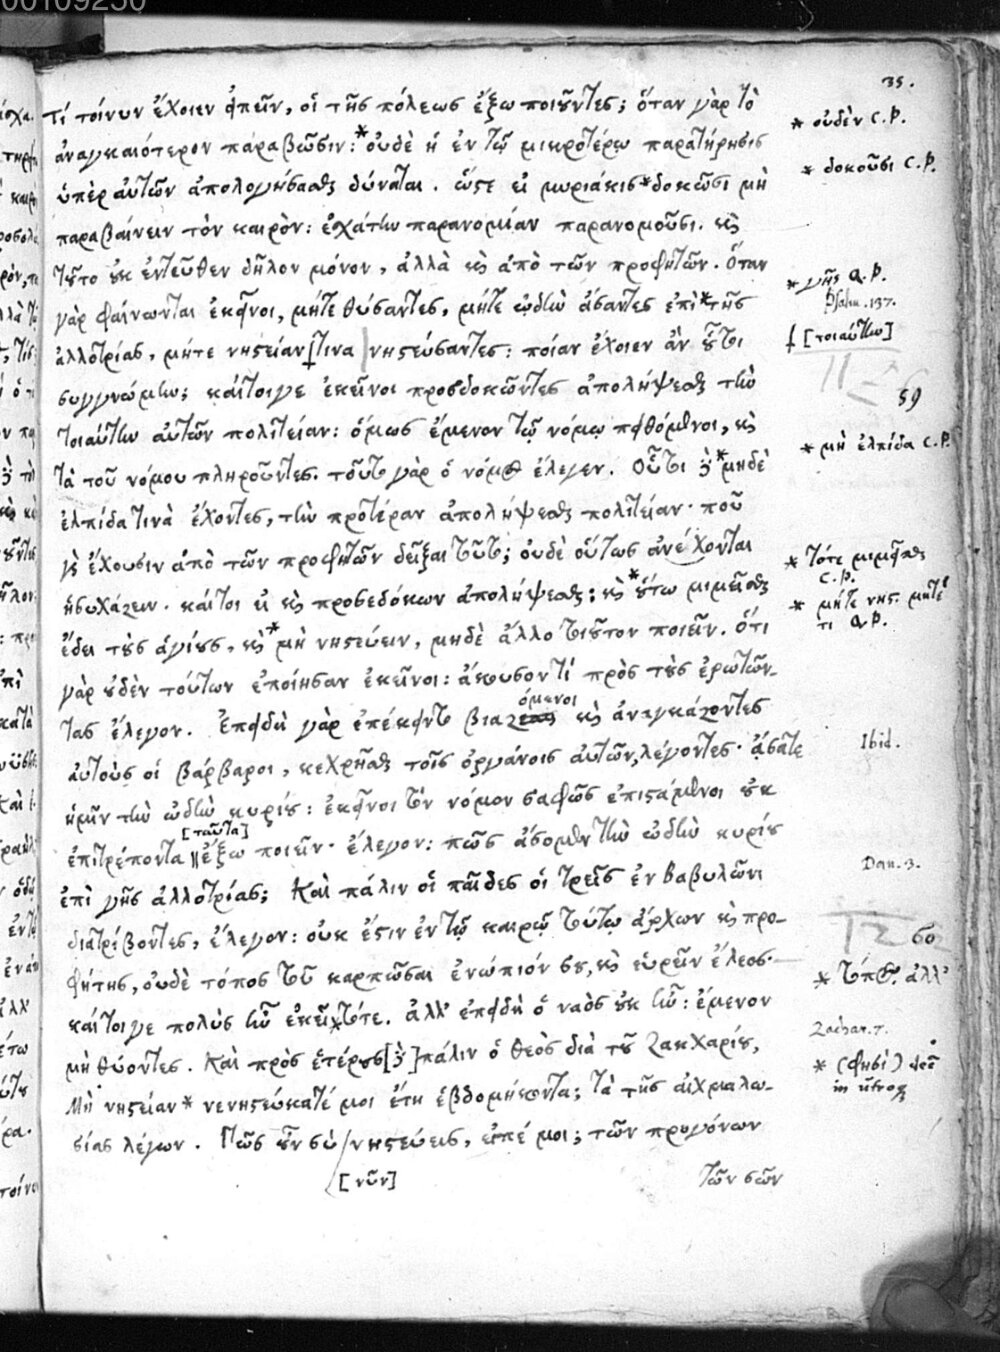 00109250
35.
τί τοίνυν ἔχοιεν εἰπεῖν, οἱ τῆς πόλεως ἔξω ποιοῦντες; ὅταν γὰρ τὸ
* οὐδὲν C.P.
ἀναγκαιότερον παραβῶσιν: * οὐδὲ ἡ ἐν τῷ μικροτέρῳ παρατήρησις
* δοκοῦσι C.P.
ὑπὲρ αὐτῶν ἀπολογήσασθαι δύναται. ὥστε εἰ μυριάκις * δοκῶσι μὴ
παραβαίνειν τὸν καιρὸν: ἐσχάτην παρανομίαν παρανομοῦσι. καὶ
τοῦτο οὐκ ἐντεῦθεν δῆλον μόνον, ἀλλὰ καὶ ἀπὸ τῶν προφητῶν. Ὅταν
* γῆς Q.P.
γὰρ φαίνωνται ἐκεῖνοι, μήτε θύσαντες, μήτε ᾠδὴν ᾄσαντες ἐπὶ * τῆς
Psalm. 137.
† [τοιαύτην]
ἀλλοτρίας, μήτε νηστείαν † τινα νηστεύσαντες: ποίαν ἔχοιεν ἂν οὗτοι
συγγνώμην; καίτοιγε ἐκεῖνοι προσδοκῶντες ἀπολήψεσθαι τὴν
59
τοιαύτην αὐτῶν πολιτείαν: ὅμως ἔμενον τῷ νόμῳ πειθόμενοι, καὶ
* μὴ ἐλπίδα C.P.
τὰ τοῦ νόμου πληροῦντες. τοῦτο γὰρ ὁ νόμος ἔλεγεν. Οὗτοι δὲ * μηδὲ
ἐλπίδα τινὰ ἔχοντες, τὴν προτέραν ἀπολήψεσθαι πολιτείαν· ποῦ
γὰρ ἔχουσιν ἀπὸ τῶν προφητῶν δεῖξαι τοῦτο; οὐδὲ οὕτως ἀνέχονται
* τότε μιμεῖσθαι C.P.
ἡσυχάζειν. καίτοι εἰ καὶ προσεδόκων ἀπολήψεσθαι; καὶ * οὕτω μιμεῖσθαι
* μήτε νης. μήτε τι Q.P.
ἔδει τοὺς ἁγίους, καὶ * μὴ νηστεύειν, μηδὲ ἄλλο τοιοῦτον ποιεῖν. ὅτι
γὰρ οὐδὲν τούτων ἐποίησαν ἐκεῖνοι: ἄκουσον τί πρὸς τοὺς ἐρωτῶν-
τας ἔλεγον. Ἐπειδὴ γὰρ ἐπέκειντο βιαζόμενοι καὶ ἀναγκάζοντες
Ibid.
αὐτοὺς οἱ βάρβαροι, κεχρῆσθαι τοῖς ὀργάνοις αὐτῶν, λέγοντες· ᾄσατε
ἡμῖν τὴν ᾠδὴν κυρίου: ἐκεῖνοι τὸν νόμον σαφῶς ἐπιστάμενοι οὐκ
ἐπιτρέποντα [ταῦτα] ἔξω ποιεῖν· ἔλεγον: πῶς ᾄσομεν τὴν ᾠδὴν κυρίου
Dan. 3.
ἐπὶ γῆς ἀλλοτρίας; Καὶ πάλιν οἱ παῖδες οἱ τρεῖς ἐν Βαβυλῶνι
60
διατρίβοντες, ἔλεγον: οὐκ ἔστιν ἐν τῷ καιρῷ τούτῳ ἄρχων καὶ προ-
φήτης, οὐδὲ τόπος τοῦ καρπῶσαι ἐνώπιόν σου, καὶ εὑρεῖν ἔλεος·
* τόπος. ἀλλ'
καίτοιγε πολὺς ἦν ἐκεῖ * τότε. ἀλλ' ἐπειδὴ ὁ ναὸς οὐκ ἦν: ἔμενον
Zachar. 7.
μὴ θύοντες. Καὶ πρὸς ἑτέρους [δὲ] πάλιν ὁ θεὸς διὰ τοῦ Ζακχαρίου,
* (φησὶ) deē in utroq
Μὴ νηστείαν * νενηστεύκατέ μοι ἔτη ἑβδομήκοντα; τὰ τῆς αἰχμαλω-
σίας λέγων. Πῶς οὖν σὺ / νηστεύεις, εἰπέ μοι; τῶν προγόνων
[νῦν]
τῶν σῶν